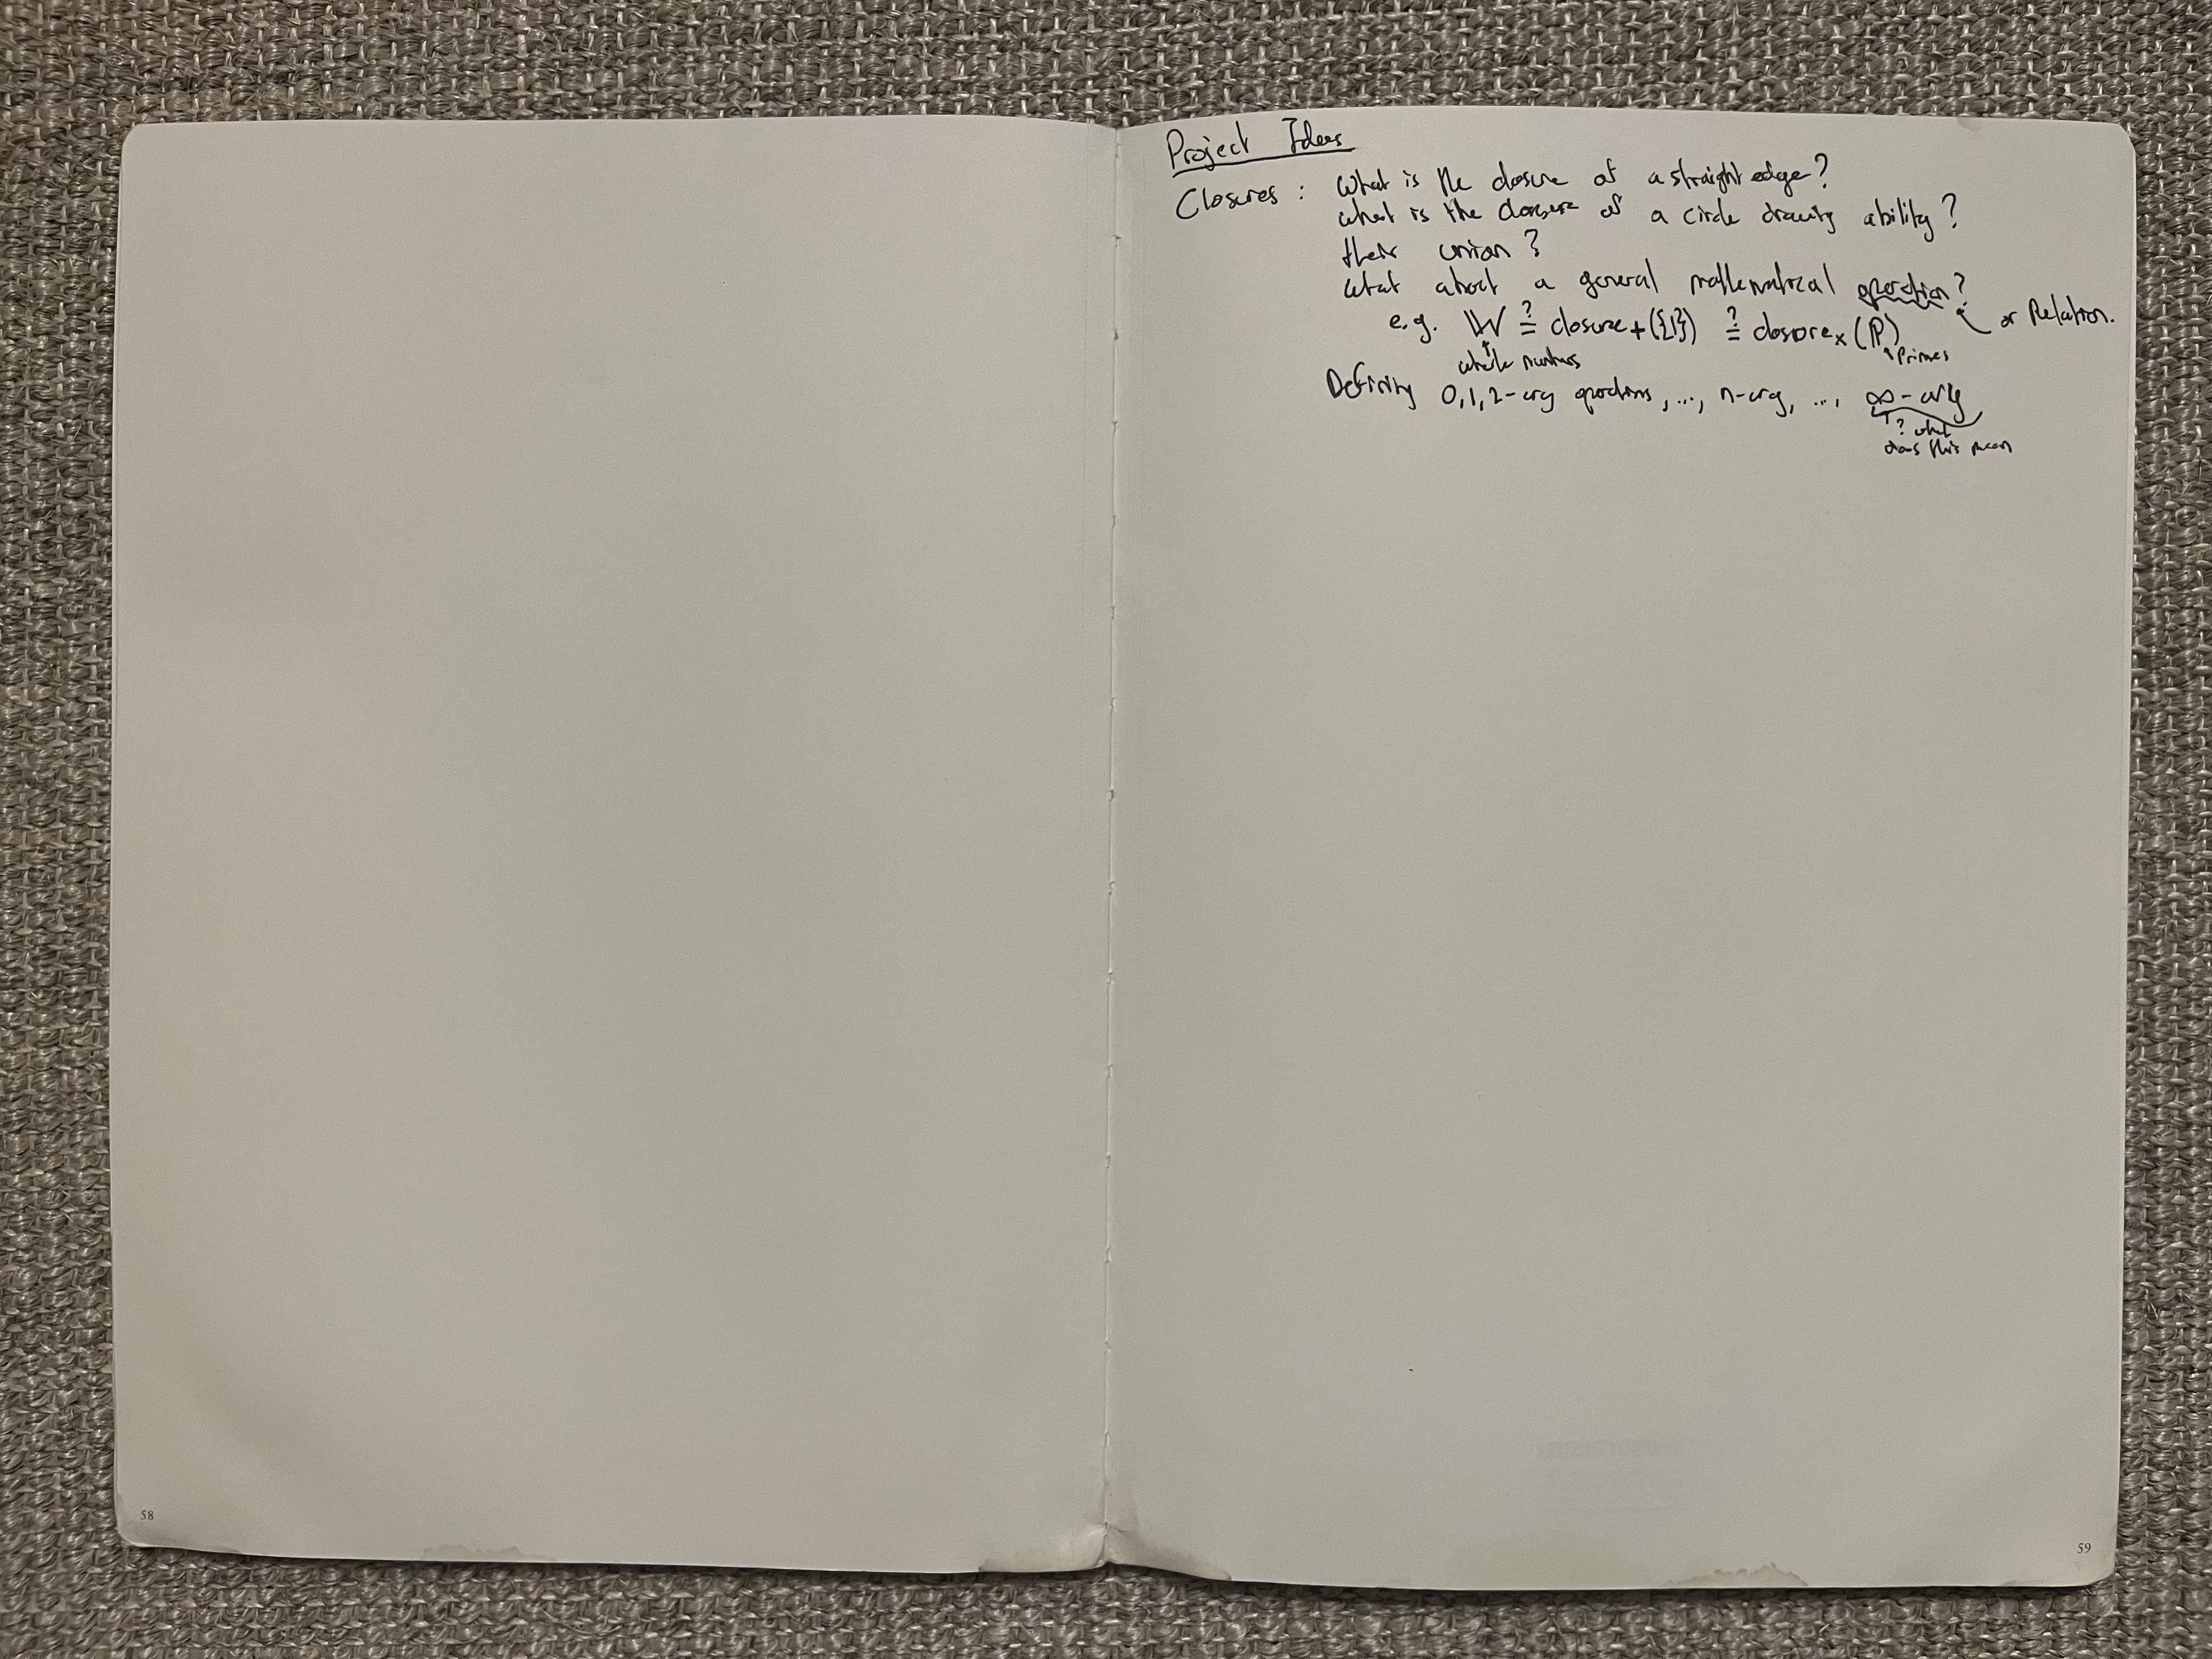 58
Project Ideas
Closures : What is the closure of a straight edge?
what is the closure of a circle drawing ability?
their union?
what about a general mathematical operation? or Relation.
e.g. W ≟ closure+({1}) ≟ closure×(P)
whole numbers
primes
Defining 0,1,2-ary operations, ..., n-ary, ..., ∞-ary
? what
does this mean
59